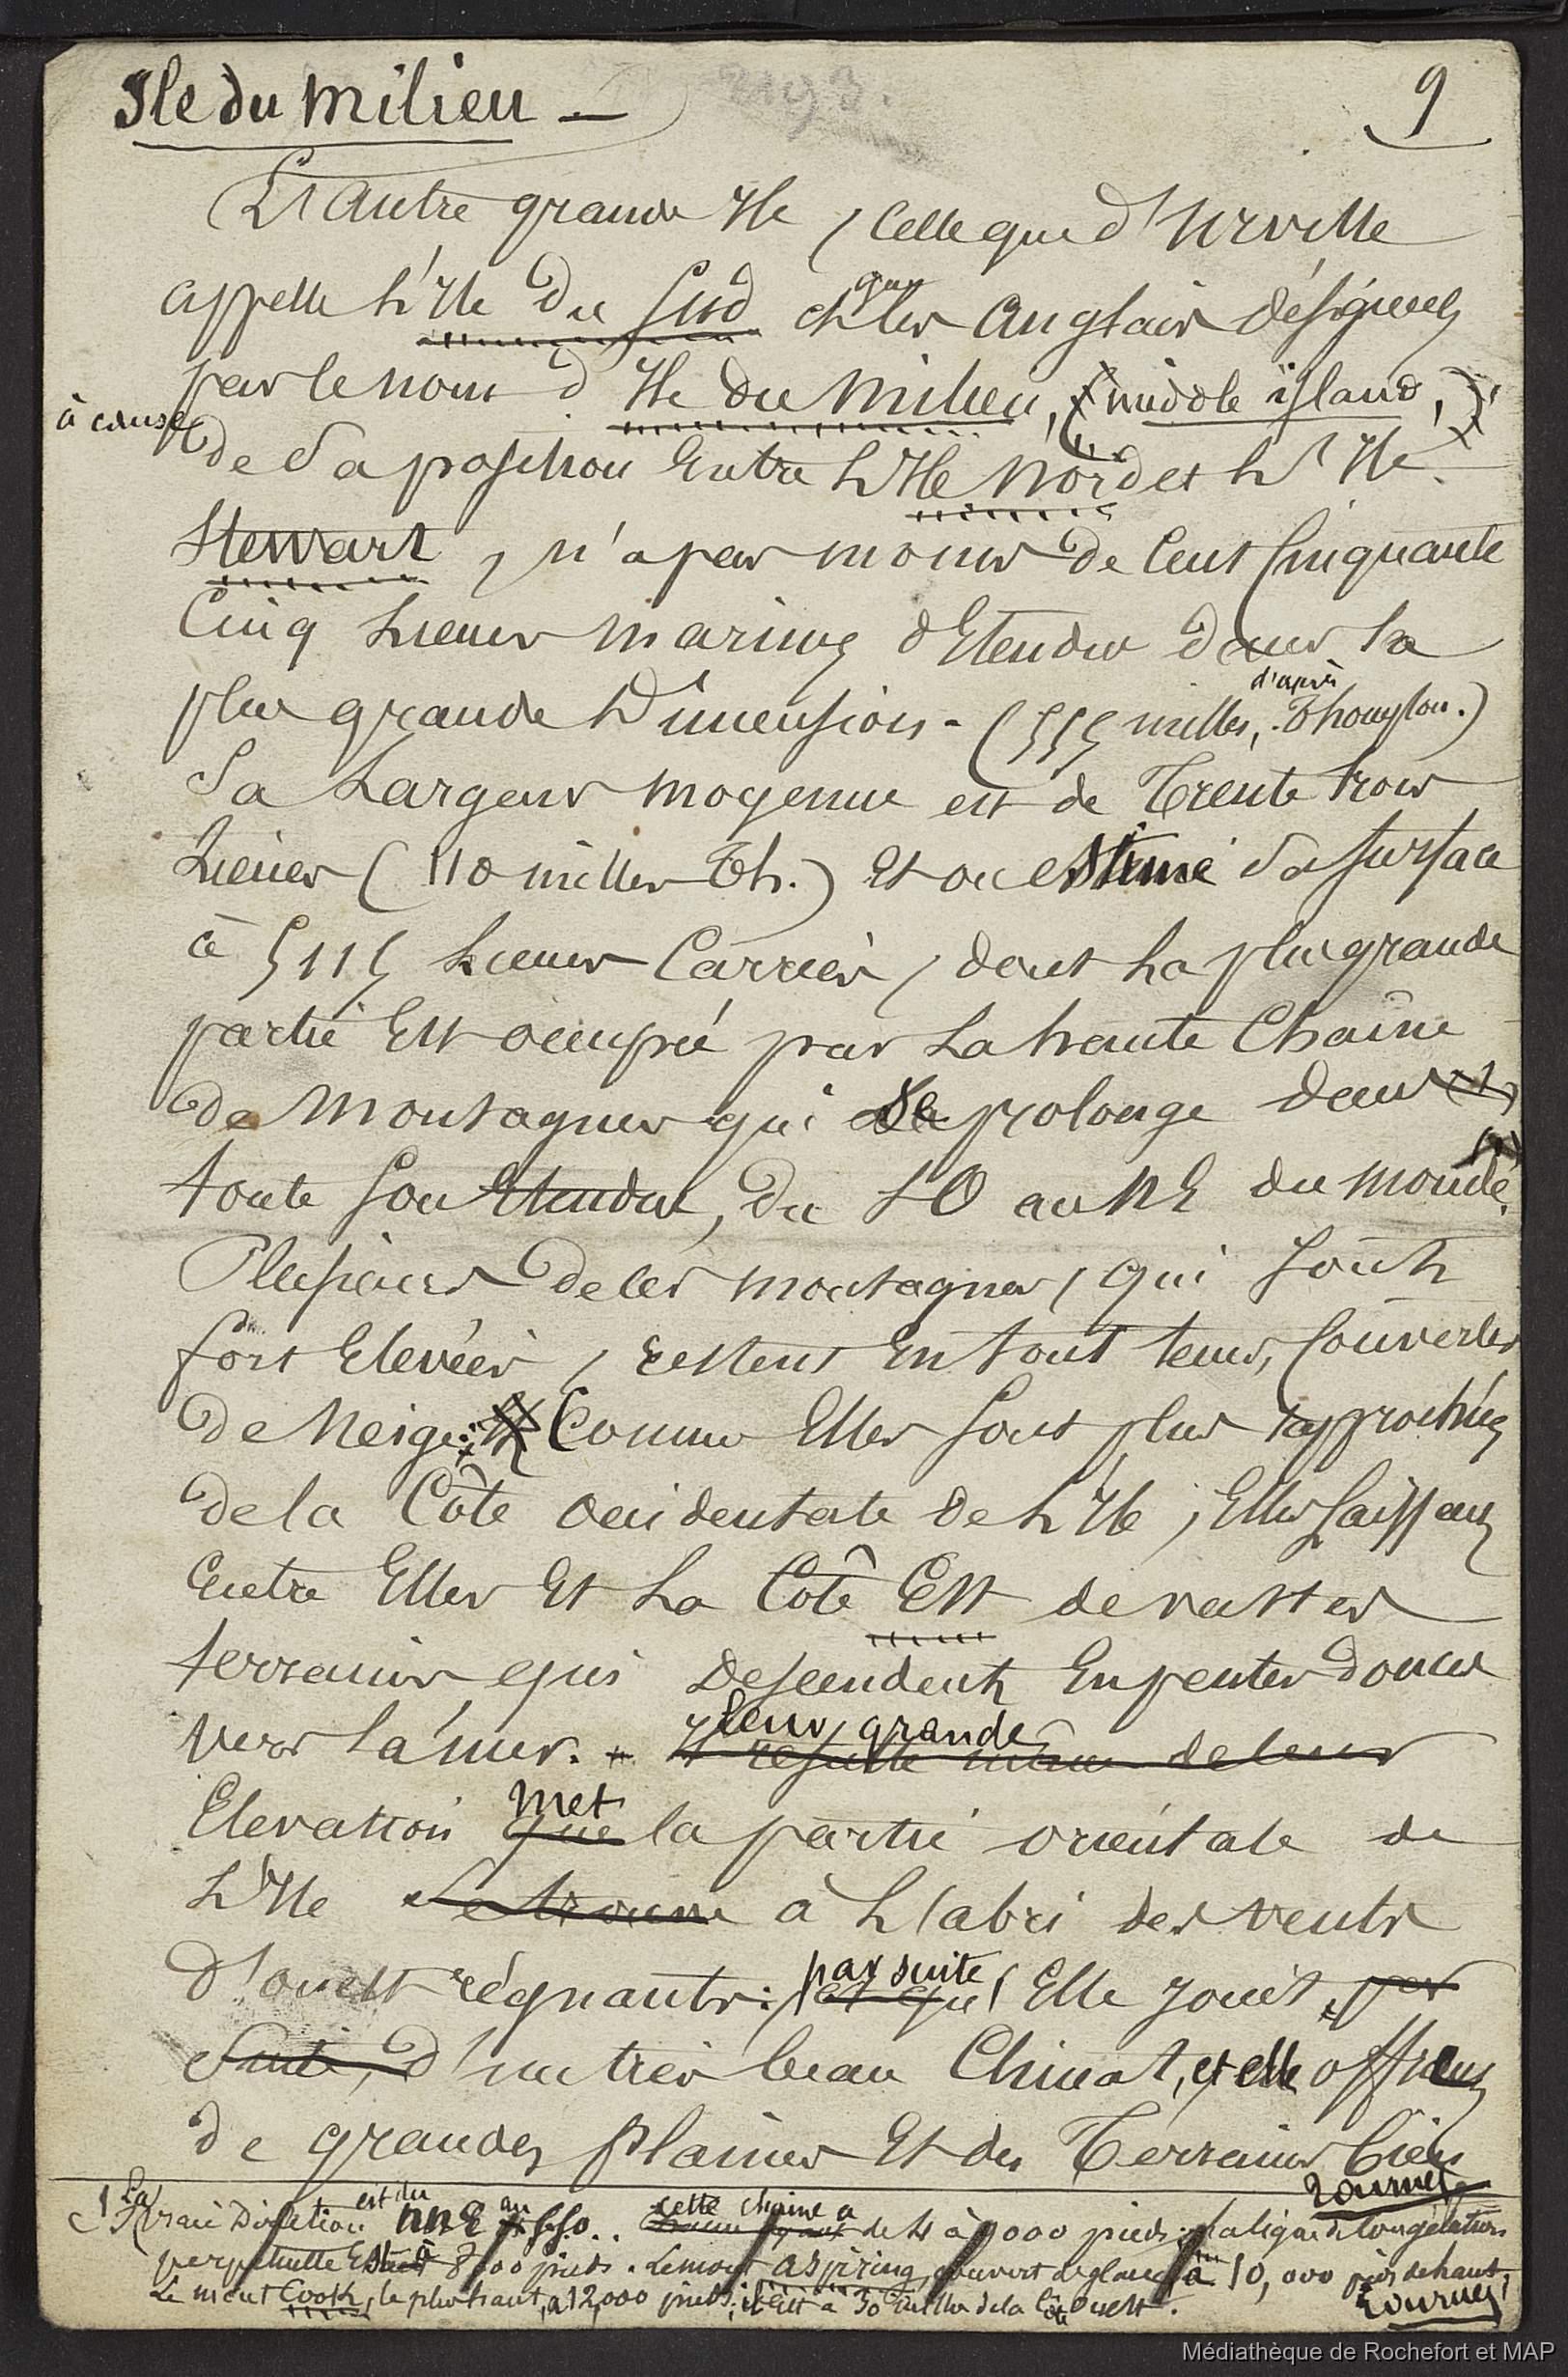 Ile du Milieu —
9
L'autre grande Ile, celle que d'Urville
appelle l'Ile du Sud et que les Anglais désignent
par le nom d'Ile du Milieu, (middle island,)
à cause
de sa position entre l'Ile Nord et l'Ile
Stewart, n'a pas moins de cent cinquante
cinq lieues marines d'Etendue dans la
plus grande Dimension - (555 milles, d'après Thompson.)
Sa Largeur moyenne est de Trente trois
Lieues (110 milles Th.) Et on estime sa surface
à 5115 Lieues Carrées, dont la plus grande
partie Est occupée par La haute Chaîne
de Montagnes qui se prolonge dans
toute son Etendue, du SO au NE du monde. (1)
Plusieurs de ces montagnes, qui sont
fort Elevées, restent En tout tems, Couvertes
de Neige: Comme Elles sont plus rapprochées
de la Côte occidentale de l'Ile, Elles laissent
Entre Elles Et La Côte Est de vastes
terrains qui Descendent En pentes douces
vers la mer. Il résulte même de leur
Leur grande
Elevation que met la partie orientale de
l'Ile se trouve à l'abri des vents
d'ouest régnants: et que par suite Elle jouit par
suite, d'un très beau Climat, et elle offrent
de grandes plaines Et des Terrains bien
1 La vraie Direction est du NNE au SSO.. cette chaine a de 4 à 9000 pieds; la ligne de Congélation Tournez
perpétuelle Est à 8000 pieds. Le mont aspiring, couvert de glaces a 10,000 pieds de haut,
Le mont Cook, le plus haut, a 12,000 pieds; il est à 30 milles de la Côte Ouest. Tournez
Médiathèque de Rochefort et MAP